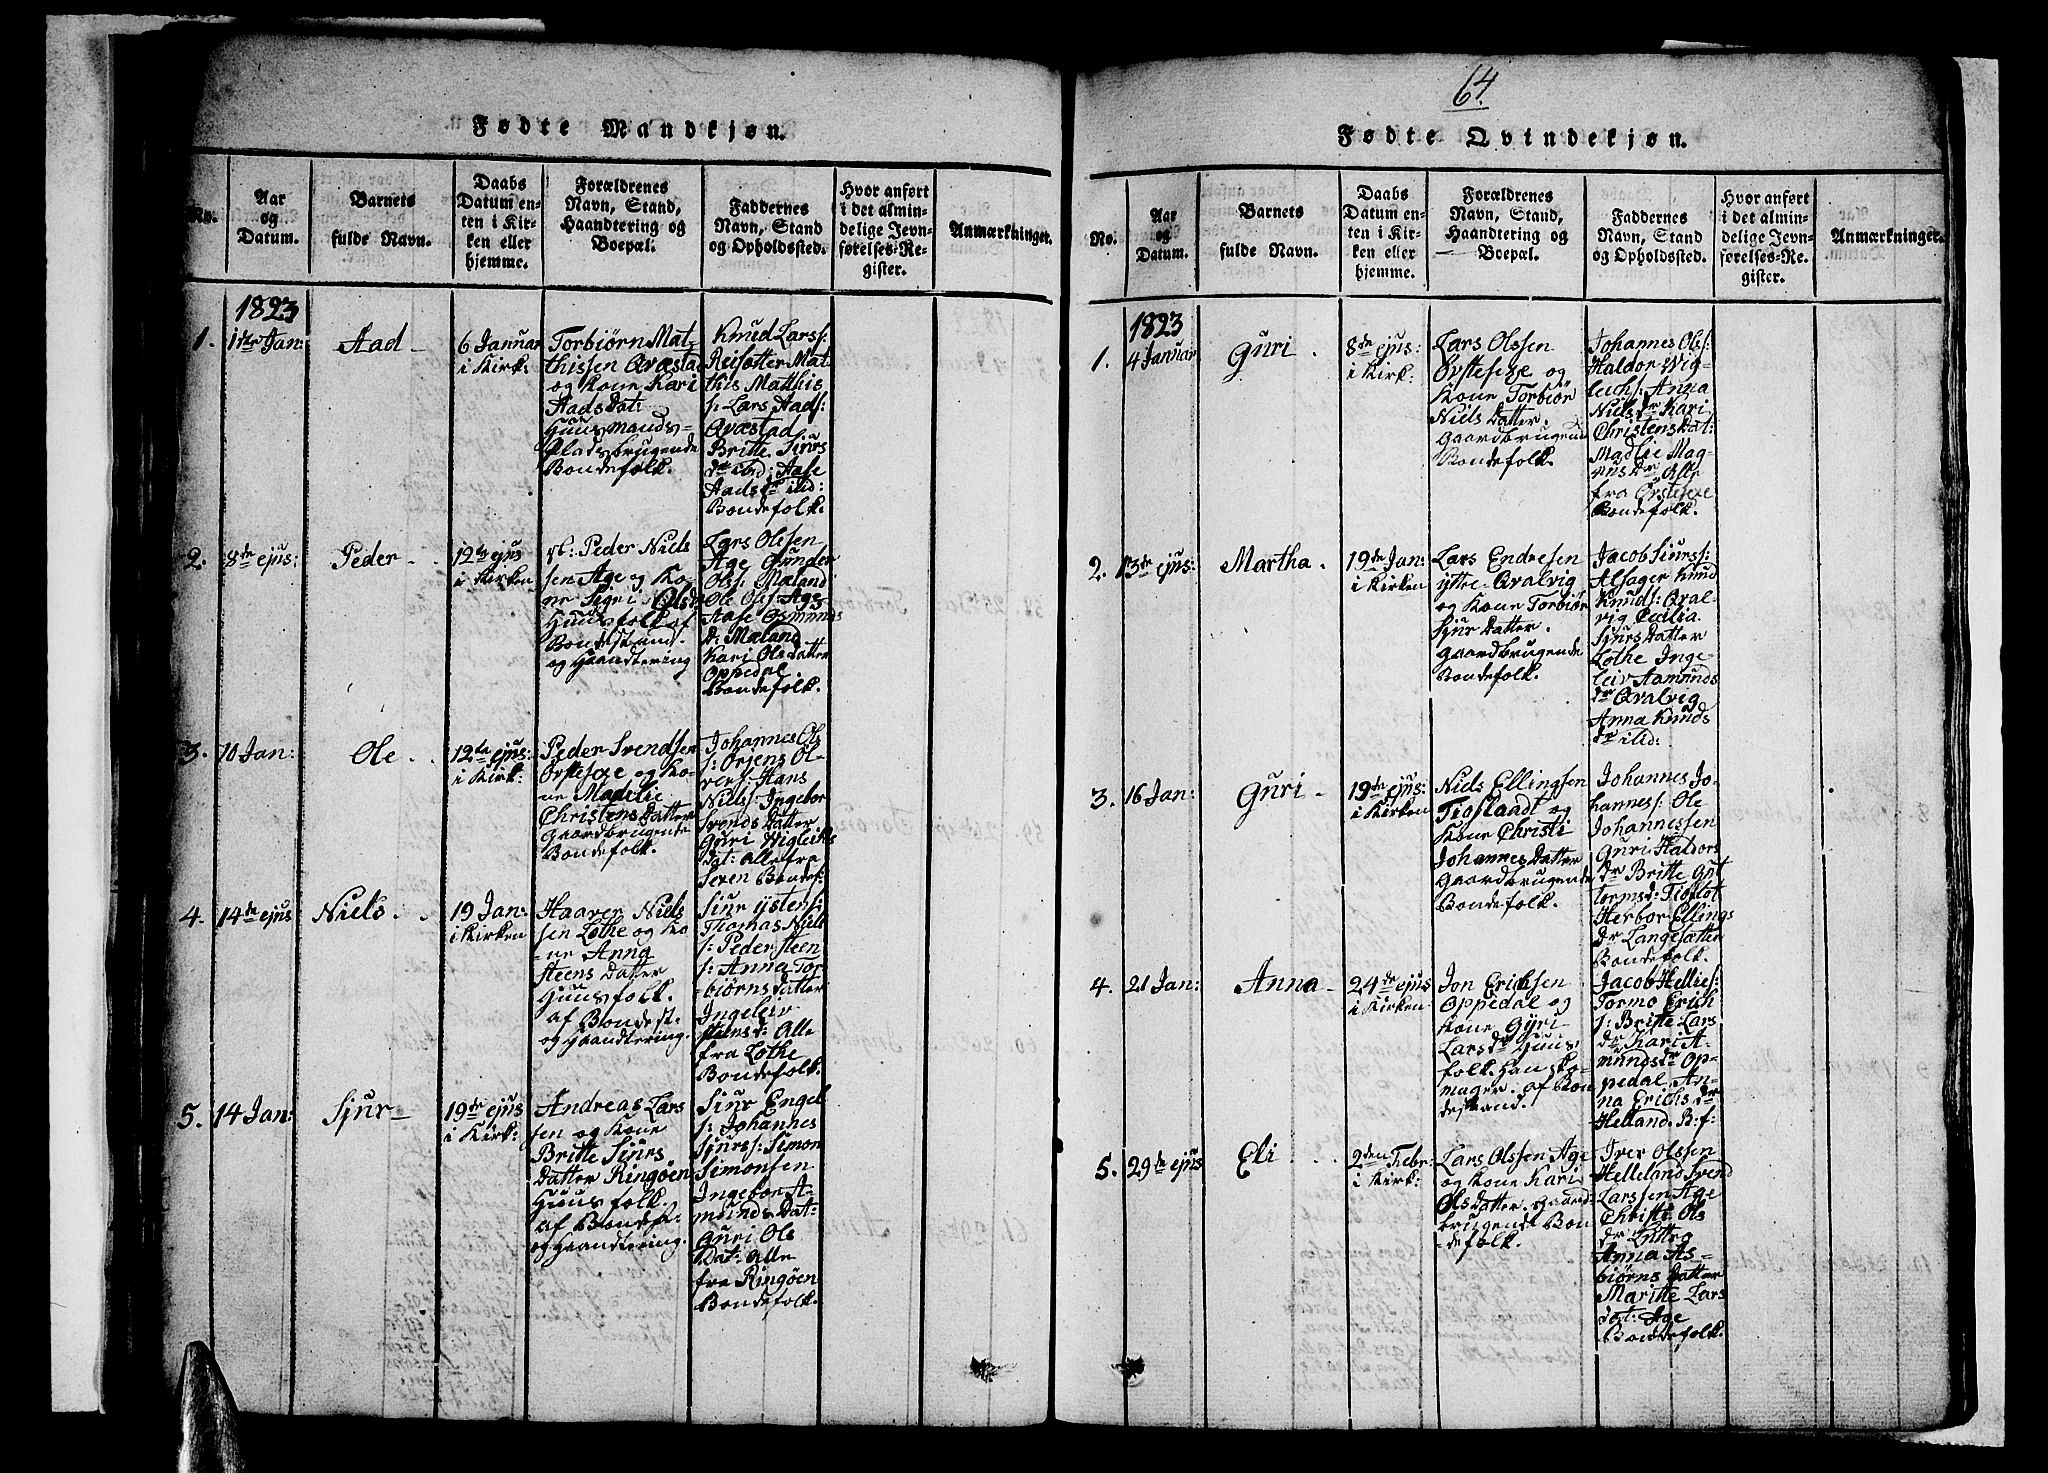 Fødte Mandkjøn.
No.
Aar
og
Datum.
Barnets
fulde Navn.
Daabs
Datum en-
ten i Kir-
ken eller
hjemme.
Forældrenes
Navn, Stand,
Haandtering og
Boepæl.
Faddernes
Navn, Stand
og Opholdssted.
Hvor anført
i det almin-
delige Jevn-
førelses-Re-
gister.
Anmærkninger.
1823
1.
1ste Jan:
Aad
6 Januar
i Kirk:
Torbiörn Mat-
thissen Qvæstad
og Kone Kari
Aads Dat:
Huusmands-
Pladsbrugende
Bondefolk.
Knud Larss:
Reisætter Mat
this Matthis
s: Lars Aads:
Qvæstad
Britte Siurs
dr ibid: Aase
Aadsdr ibid:
Bondefolk.
2.
8de ejus:
Peder
12te ejus
i Kirken
Peder Niels
sen Age og Ko-
ne Sigri Olsdr
Huusfolk af
Bondestand.
og Haandtering
Lars Olssen
Age Gunder
Olss: Mæland
Ole Olss: Age
Aase Osmunds
D: Mæland
Kari Olsdatter
Oppedal.
Bondefolk.
3.
10 Jan:
Ole
12te ejus:
i Kirk:
Peder Svendsen
Ørstesexe og Ko-
ne Madelie
Christens Datter
Gaardbrugende
Bondefolk.
Johannes Ols
s: Orjens Ol-
vers: Hans
Niels: Ingebor
Svends Datter
Guri Wigleiks
Dat: alle fra
Sexen Bondef:
4.
14de ejus
Niels
19 Jan:
i Kirken
Haaver Niels
sen Lothe og Ko
ne Anna
Steens Datter
Huusfolk.
af Bondest-
og Haandtering.
Siur Ystens:
Thomas Niels
s: Peder Steen
s: Anna Tor-
biörns Datter
Ingeleiv
Steensd: Alle
fra Lothe
Bondefolk.
5.
14 Jan:
Sjur
19de ejus
i Kirk:
Andreas Lars
sen og Kone
Britte Siurs
Datter Ringøen
Huusfolk.
af Bondest-
og Haandtering.
Siur Engel
s: Johannes
Sjurs: Simon
Simonsen
Ingebor A-
munds Dat-
Guri Ole
Dat: Alle
fra Ringøen
Bondefolk.
64.
Fødte Qvindekjøn.
No.
Aar
og
Datum.
Barnets
fulde Navn.
Daabs
Datum en-
ten i Kir-
ken eller
hjemme.
Forældrenes
Navn, Stand,
Haandtering og
Boepæl.
Faddernes
Navn, Stand
og Opholdssted.
Hvor anført
i det almin-
delige Jevn-
førelses-Re-
gister.
Anmærkninger.
1823
1.
4 Januar
Guri
8de ejus:
i Kirk:
Lars Olssen
Ørstesexe og
Kone Torbiør
Niels Datter.
Gaardbrugende
Bondefolk.
Johannes Ols:
Haldor Wig-
leichs: Anna
Nielsdr Kari
Christensdat:
Madlie Mag-
nusdr
fra Ørstesexe
Bondefolk.
2.
13de ejus:
Martha
19de Jan:
i Kirken
Lars Endresen
ytre Qvalvig
og Kone Torbiør
Sjur Datter.
Gaardbrugende
Bondefolk.
Jacob Siurs:
Alsager Knud
Knuds: Qval-
vig Cecilia.
Sjurs Datter
Lothe Inge-
leiv Aamunds
dr Qvalvig
Anna Knuds
dr ibid:
3.
16 Jan:
Guri
19de ejus:
i Kirken
Niels Ellingsen
Tioflaadt og
Kone Christi
Johannes Datter
Gaardbrugende
Bondefolk.
Johannes Jo-
hanness: Ole
Johannessen
Guri Haldors
dr Britte Gut
tormsd: Tioflot
Herbor Ellings
dr Langesætter
Bondefolk.
4.
21 Jan:
Anna
24de ejus
i Kirken
Jon Erichsen
Oppedal og
Kone Gÿri
Larsdr Huus-
folk. Han Sko-
mager. af Bon
destand.
Jacob Hellies:
Tormo Erich
s: Britte Lars
dr Kari A-
mundsdr Op-
pedal. An-
na Erichsdr
Helland. B:f:
5.
29de ejus
Eli
2den Febr:
i Kirk:
Lars Olssen Age
og Kone Kari
Olsdatter. Gaard-
brugende Bon
defolk.
Iver Olssen
Helleland Svend
Larssen Age
Christi Ols
dr
Anna As-
biørns Datter
Maritte Lars
dat: Age
Bondefolk.